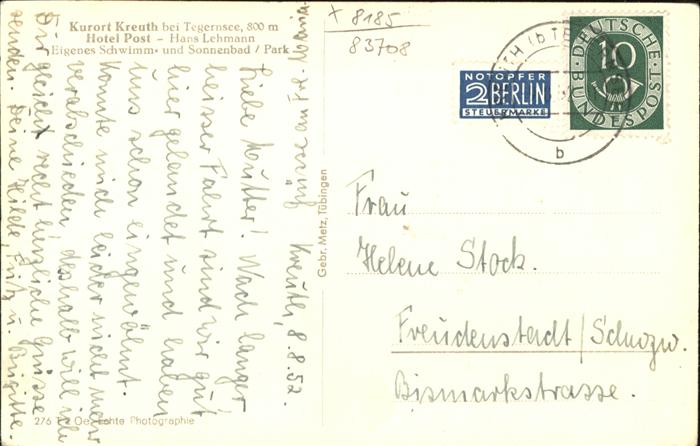 Kurort Kreuth bei Tegernsee, 800 m
Hotel Post - Hans Lehmann
Eigenes Schwimm- und Sonnenbad / Park
Kreuth, 8.8.52.
Liebe Mutter! Nach langer
heisser Fahrt sind wir gut
hier gelandet und haben
uns schon eingewöhnt.
Konnte mich leider nicht mehr
verabschieden deshalb will ich
Dir gleich recht herzliche Grüsse
senden. Deine Hilde, Fritz u. Brigitte.
Grüsse an Fr. Maria
276 Echte Photographie
Gebr. Metz, Tübingen
x 8185
83708
NOTOPFER
2 BERLIN
STEUERMARKE
DEUTSCHE
BUNDESPOST
10
b
Frau
Helene Stock.
Freudenstadt/Schwzw.
Bismarkstrasse.